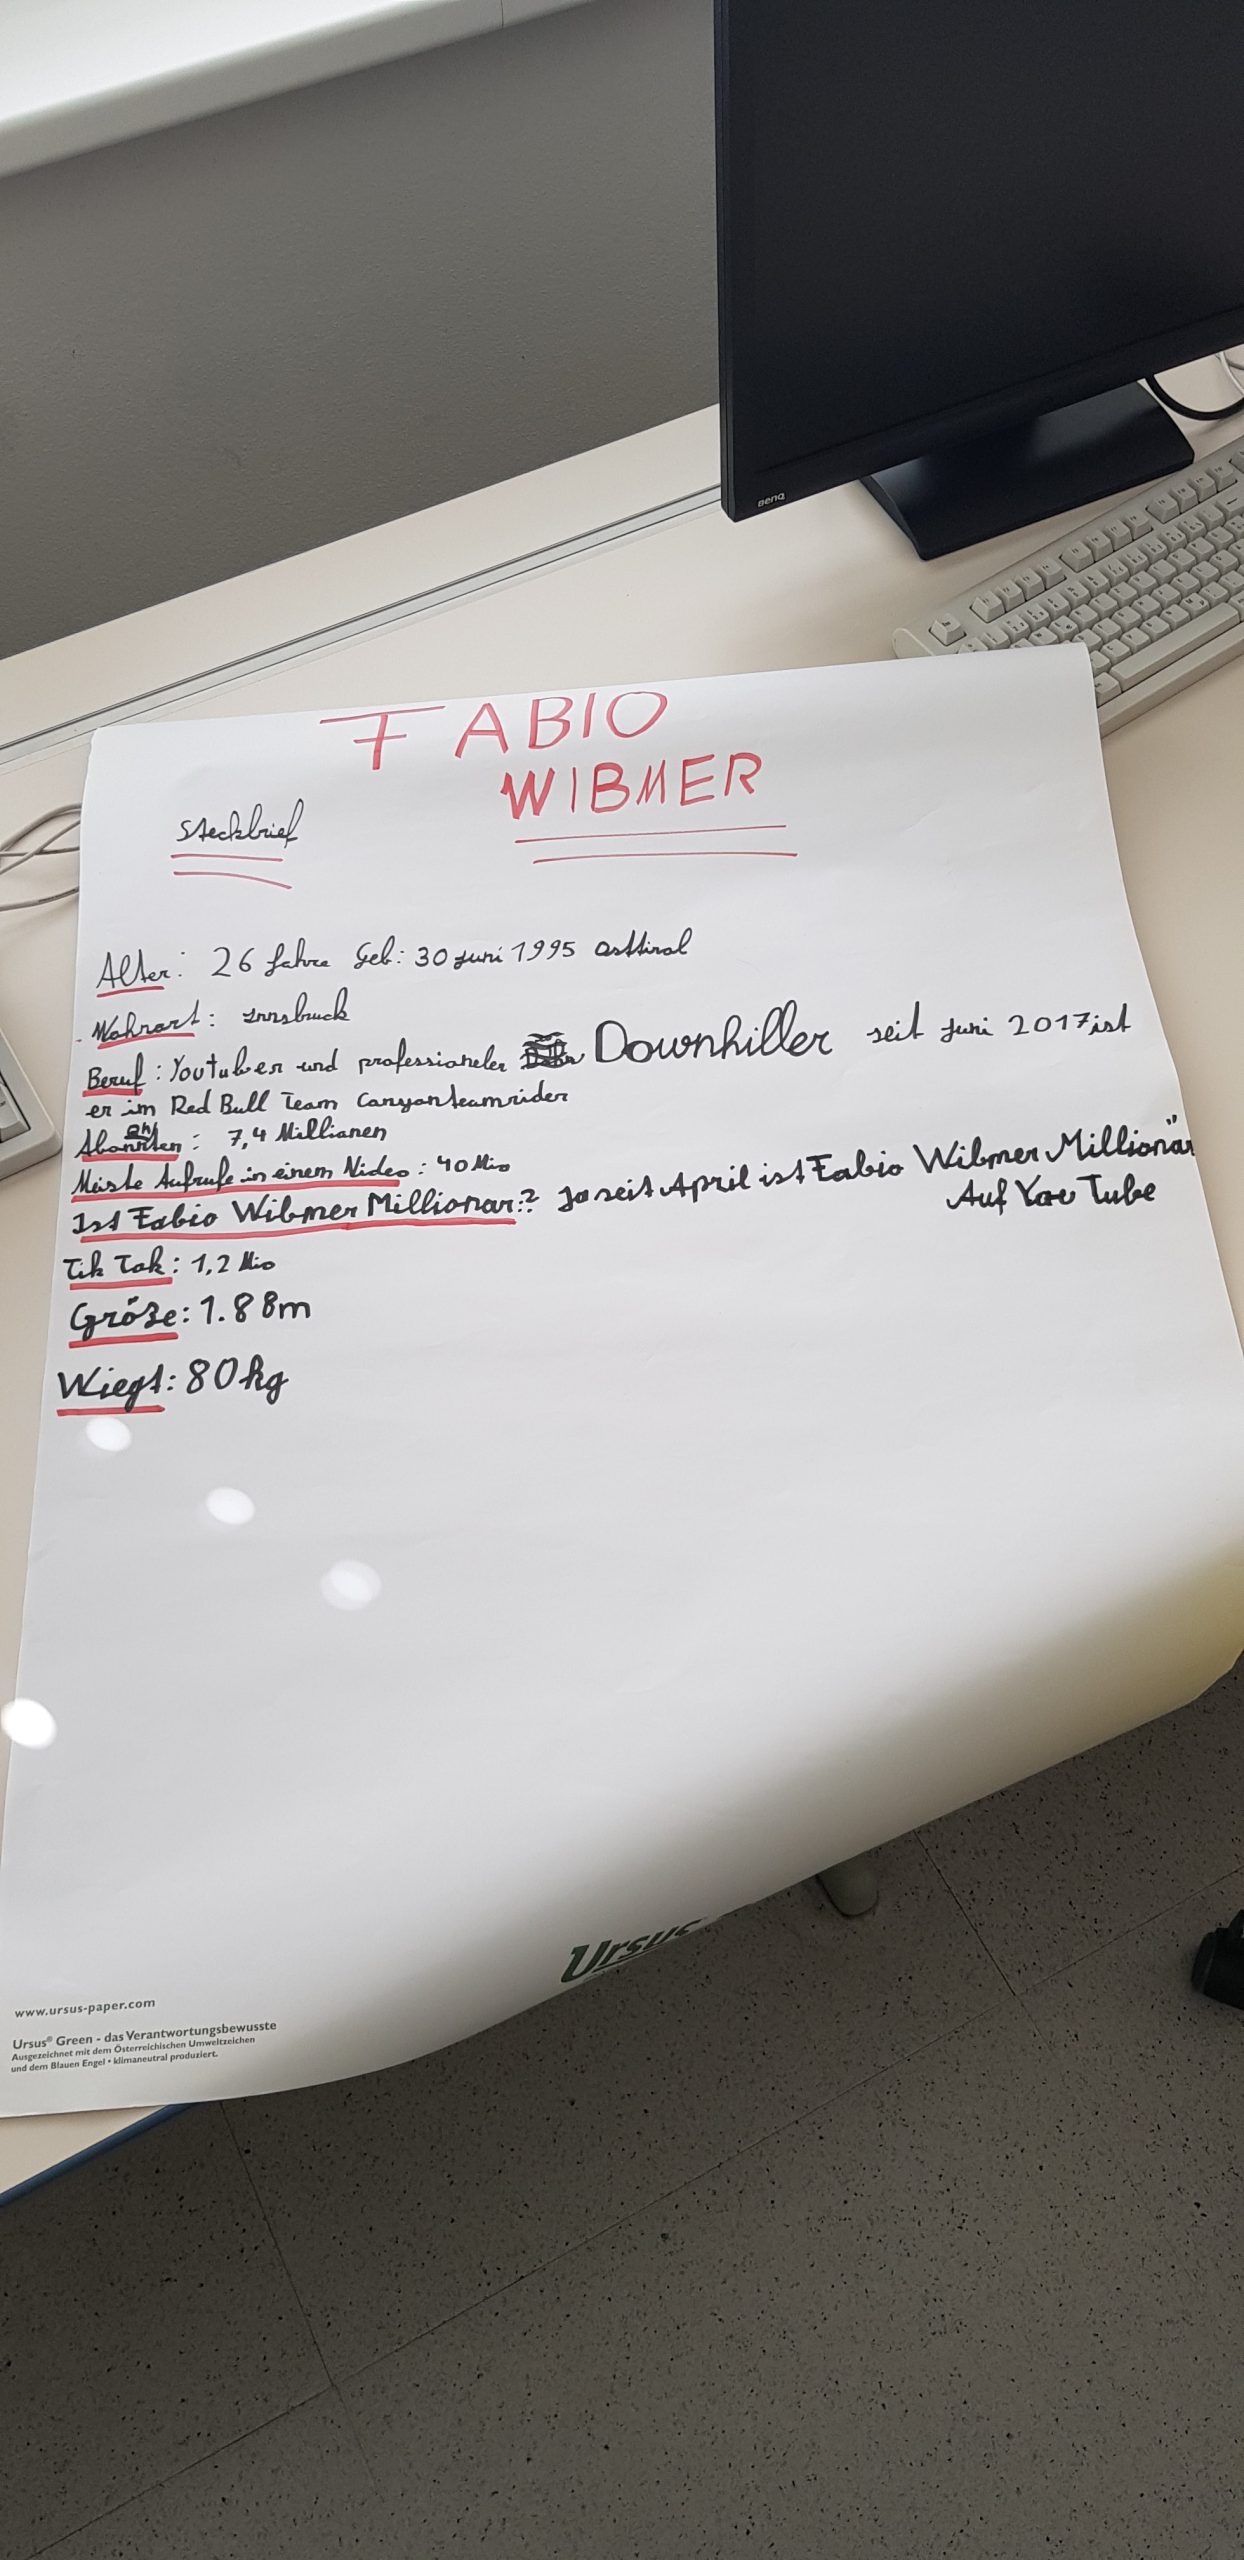 BenQ
FABIO
WIBMER
Steckbrief
Alter: 26 Jahre Geb: 30 Juni 1995 Osttirol
Wohnort: Innsbruck
Beruf: Youtuber und professioneler Downhiller seit Juni 2017 ist
er im Red Bull Team Canyonteamrider
Abonnten: 7,4 Millionen
Meiste Aufrufe in einem Video: 40 Mio
Ist Fabio Wibmer Millionar:? Ja seit April ist Fabio Wibmer Millionär
Auf You Tube
Tik Tok: 1,2 Mio
Größe: 1.88m
Wiegt: 80kg
Ursus
www.ursus-paper.com
Ursus® Green - das Verantwortungsbewusste
Ausgezeichnet mit dem Österreichischen Umweltzeichen
und dem Blauen Engel • klimaneutral produziert.